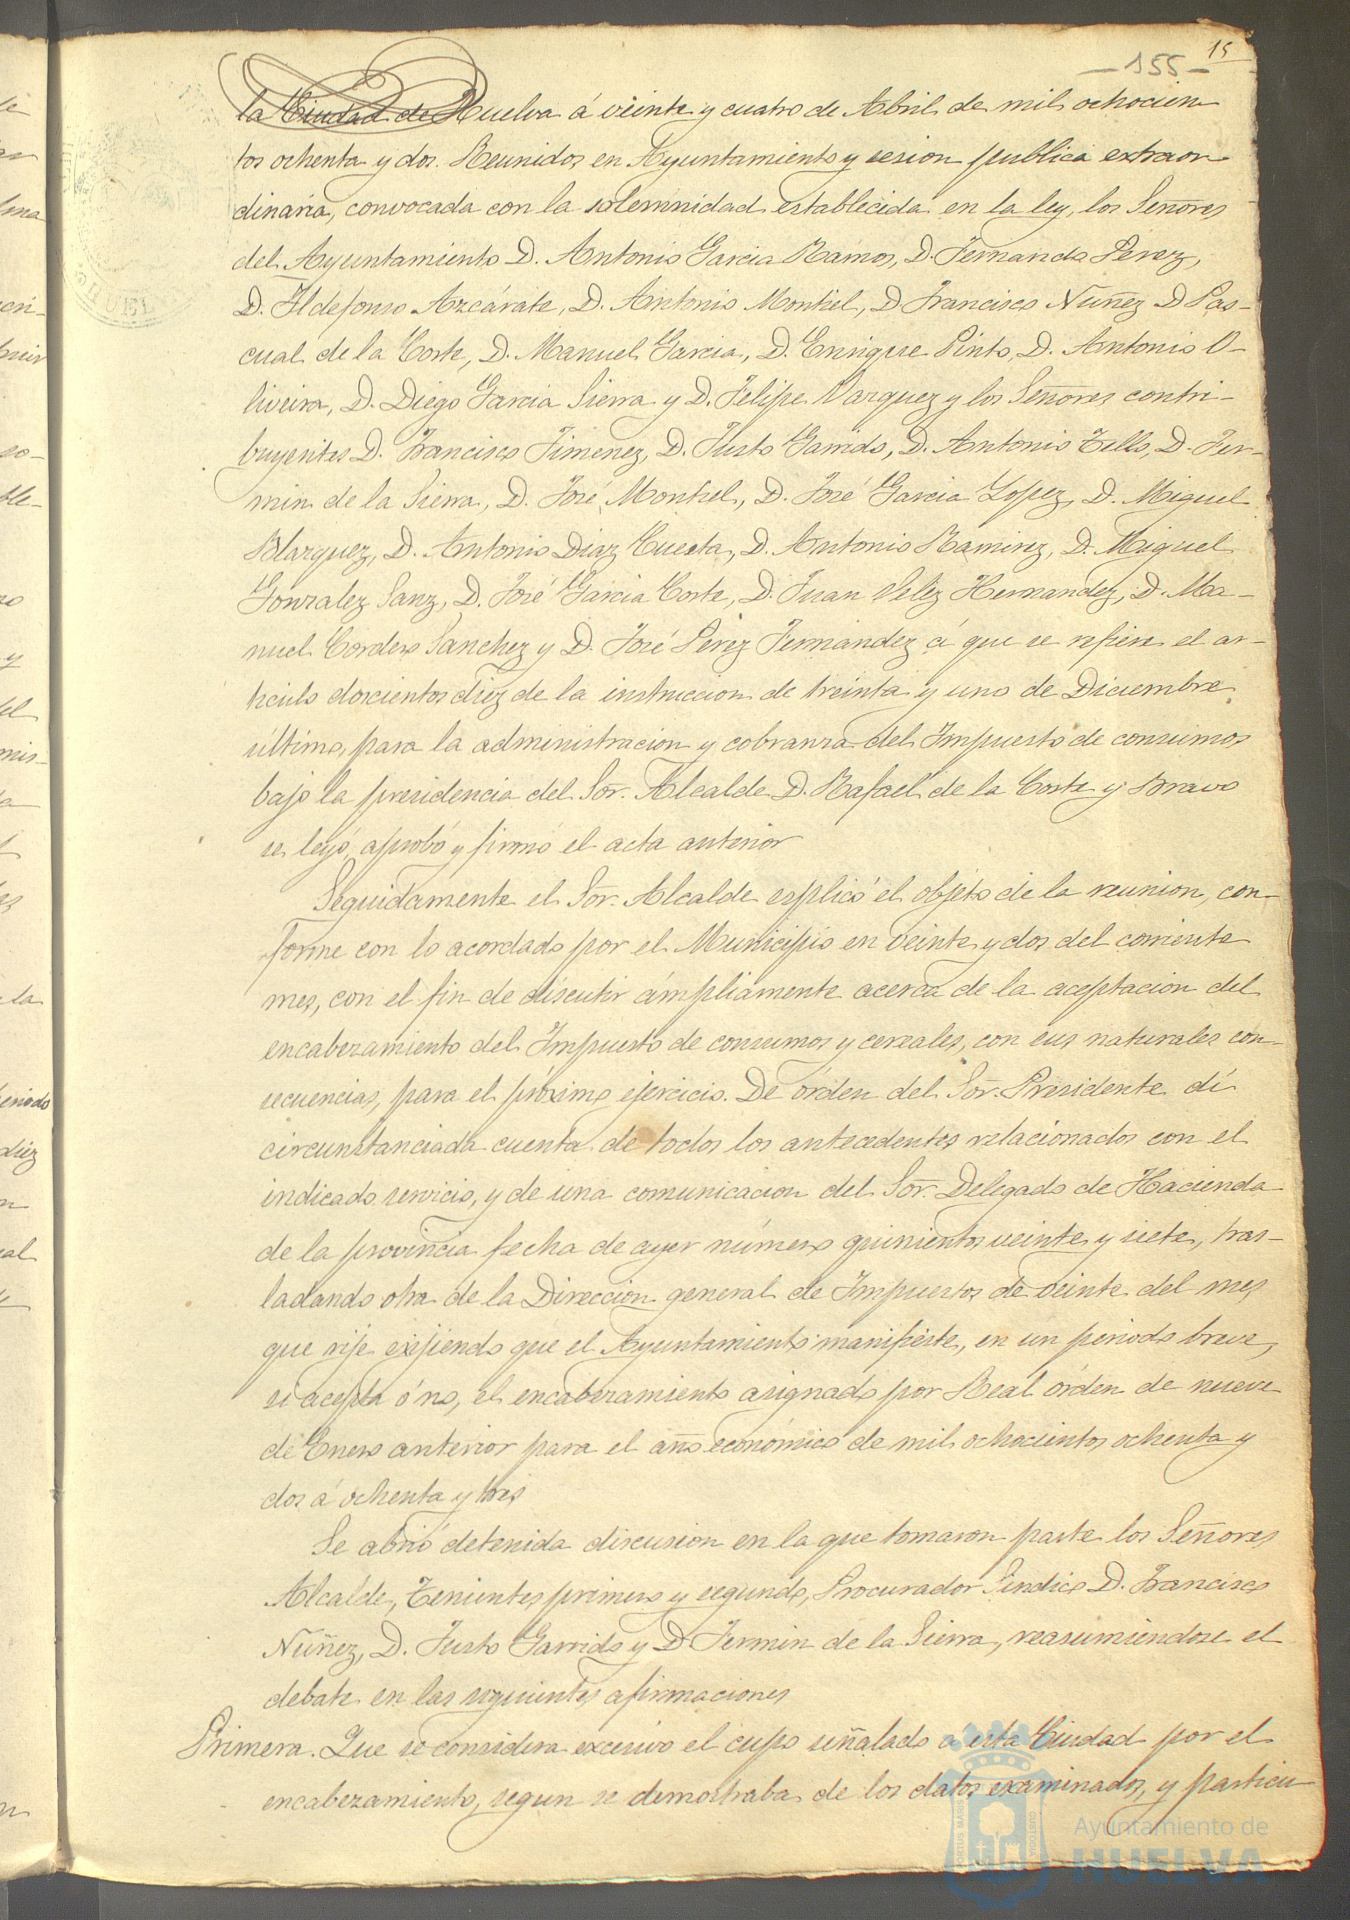 15
-155-
la Ciudad de Huelva á veinte y cuatro de Abril de mil ochocien
tos ochenta y dos. Reunidos en Ayuntamiento y sesion publica extraor
dinaria, convocada con la solemnidad establecida en la ley, los Señores
del Ayuntamiento D. Antonio Garcia Ramos, D. Fernando Perez,
D. Ildefonso Azcárate, D. Antonio Montiel, D Francisco Nuñez D Pas-
cual de la Corte, D. Manuel Garcia, D. Enrique Pinto, D. Antonio O-
liveira, D. Diego Garcia Sierra y D. Felipe Vazquez y los Señores contri-
buyentes D. Francisco Jimenez, D. Justo Garrido, D. Antonio Tello, D. Fer-
min de la Sierra, D. José Montiel, D. José Garcia Lopez, D. Miguel
Blazquez, D. Antonio Diaz Cuesta, D. Antonio Ramirez, D. Miguel
Gonzalez Sanz, D. José Garcia Corte, D. Juan Velez Hernandez, D. Ma-
nuel Cordero Sanchez y D. José Perez Fernandez á que se refiere el ar-
ticulo doscientos diez de la instruccion de treinta y uno de Diciembre
último, para la administracion y cobranza del Impuesto de consumos
bajo la presidencia del Sor. Alcalde D. Rafael de la Corte y Bravo
se leyó, aprobó y firmó el acta anterior
Seguidamente el Sor. Alcalde esplicó el objeto de la reunion, con-
forme con lo acordado por el Municipio en veinte y dos del corriente
mes, con el fin de discutir ámpliamente acerca de la aceptacion del
encabezamiento del Impuesto de consumos y cereales, con sus naturales con-
secuencias, para el próximo ejercicio. De órden del Sor. Presidente dí
circunstanciada cuenta de todos los antecedentes relacionados con el
indicado servicio, y de una comunicacion del Sor. Delegado de Hacienda
de la provincia fecha de ayer número quinientos veinte y siete, tras-
ladando otra de la Direccion general de Impuestos de veinte del mes
que rije exijiendo que el Ayuntamiento manifieste, en un periodo breve,
si acepta ó no, el encabezamiento asignado por Real órden de nueve
de Enero anterior para el año económico de mil ochocientos ochenta y
dos á ochenta y tres
Se abrió detenida discusion en la que tomaron parte los Señores
Alcalde, Tenientes primero y segundo, Procurador Sindico D. Francisco
Nuñez, D. Justo Garrido y D Fermin de la Sierra, reasumiendose el
debate en las siguientes afirmaciones
Primera. Que se considera excesivo el cupo señalado á esta Ciudad por el
encabezamiento, segun se demostraba de los datos examinados, y particu
Ayuntamiento de
HUELVA